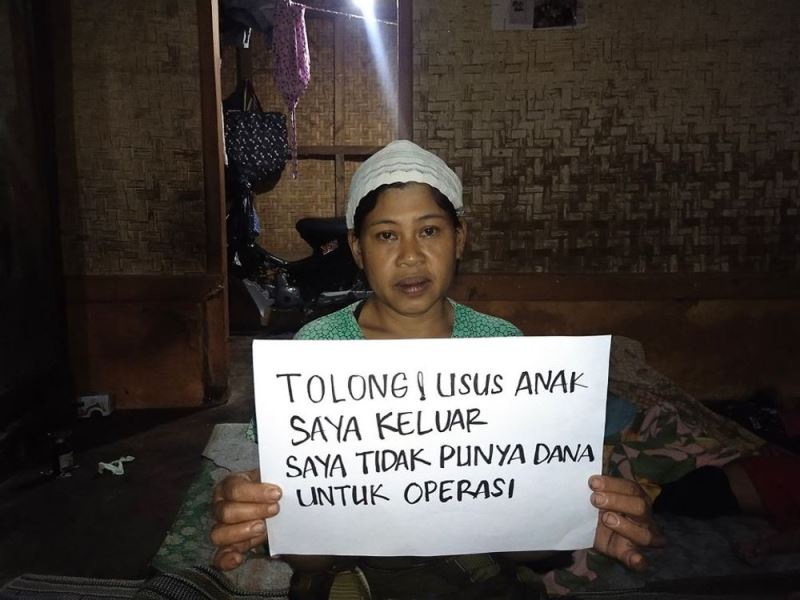 TOLONG! USUS ANAK
SAYA KELUAR
SAYA TIDAK PUNYA DANA
UNTUK OPERASI